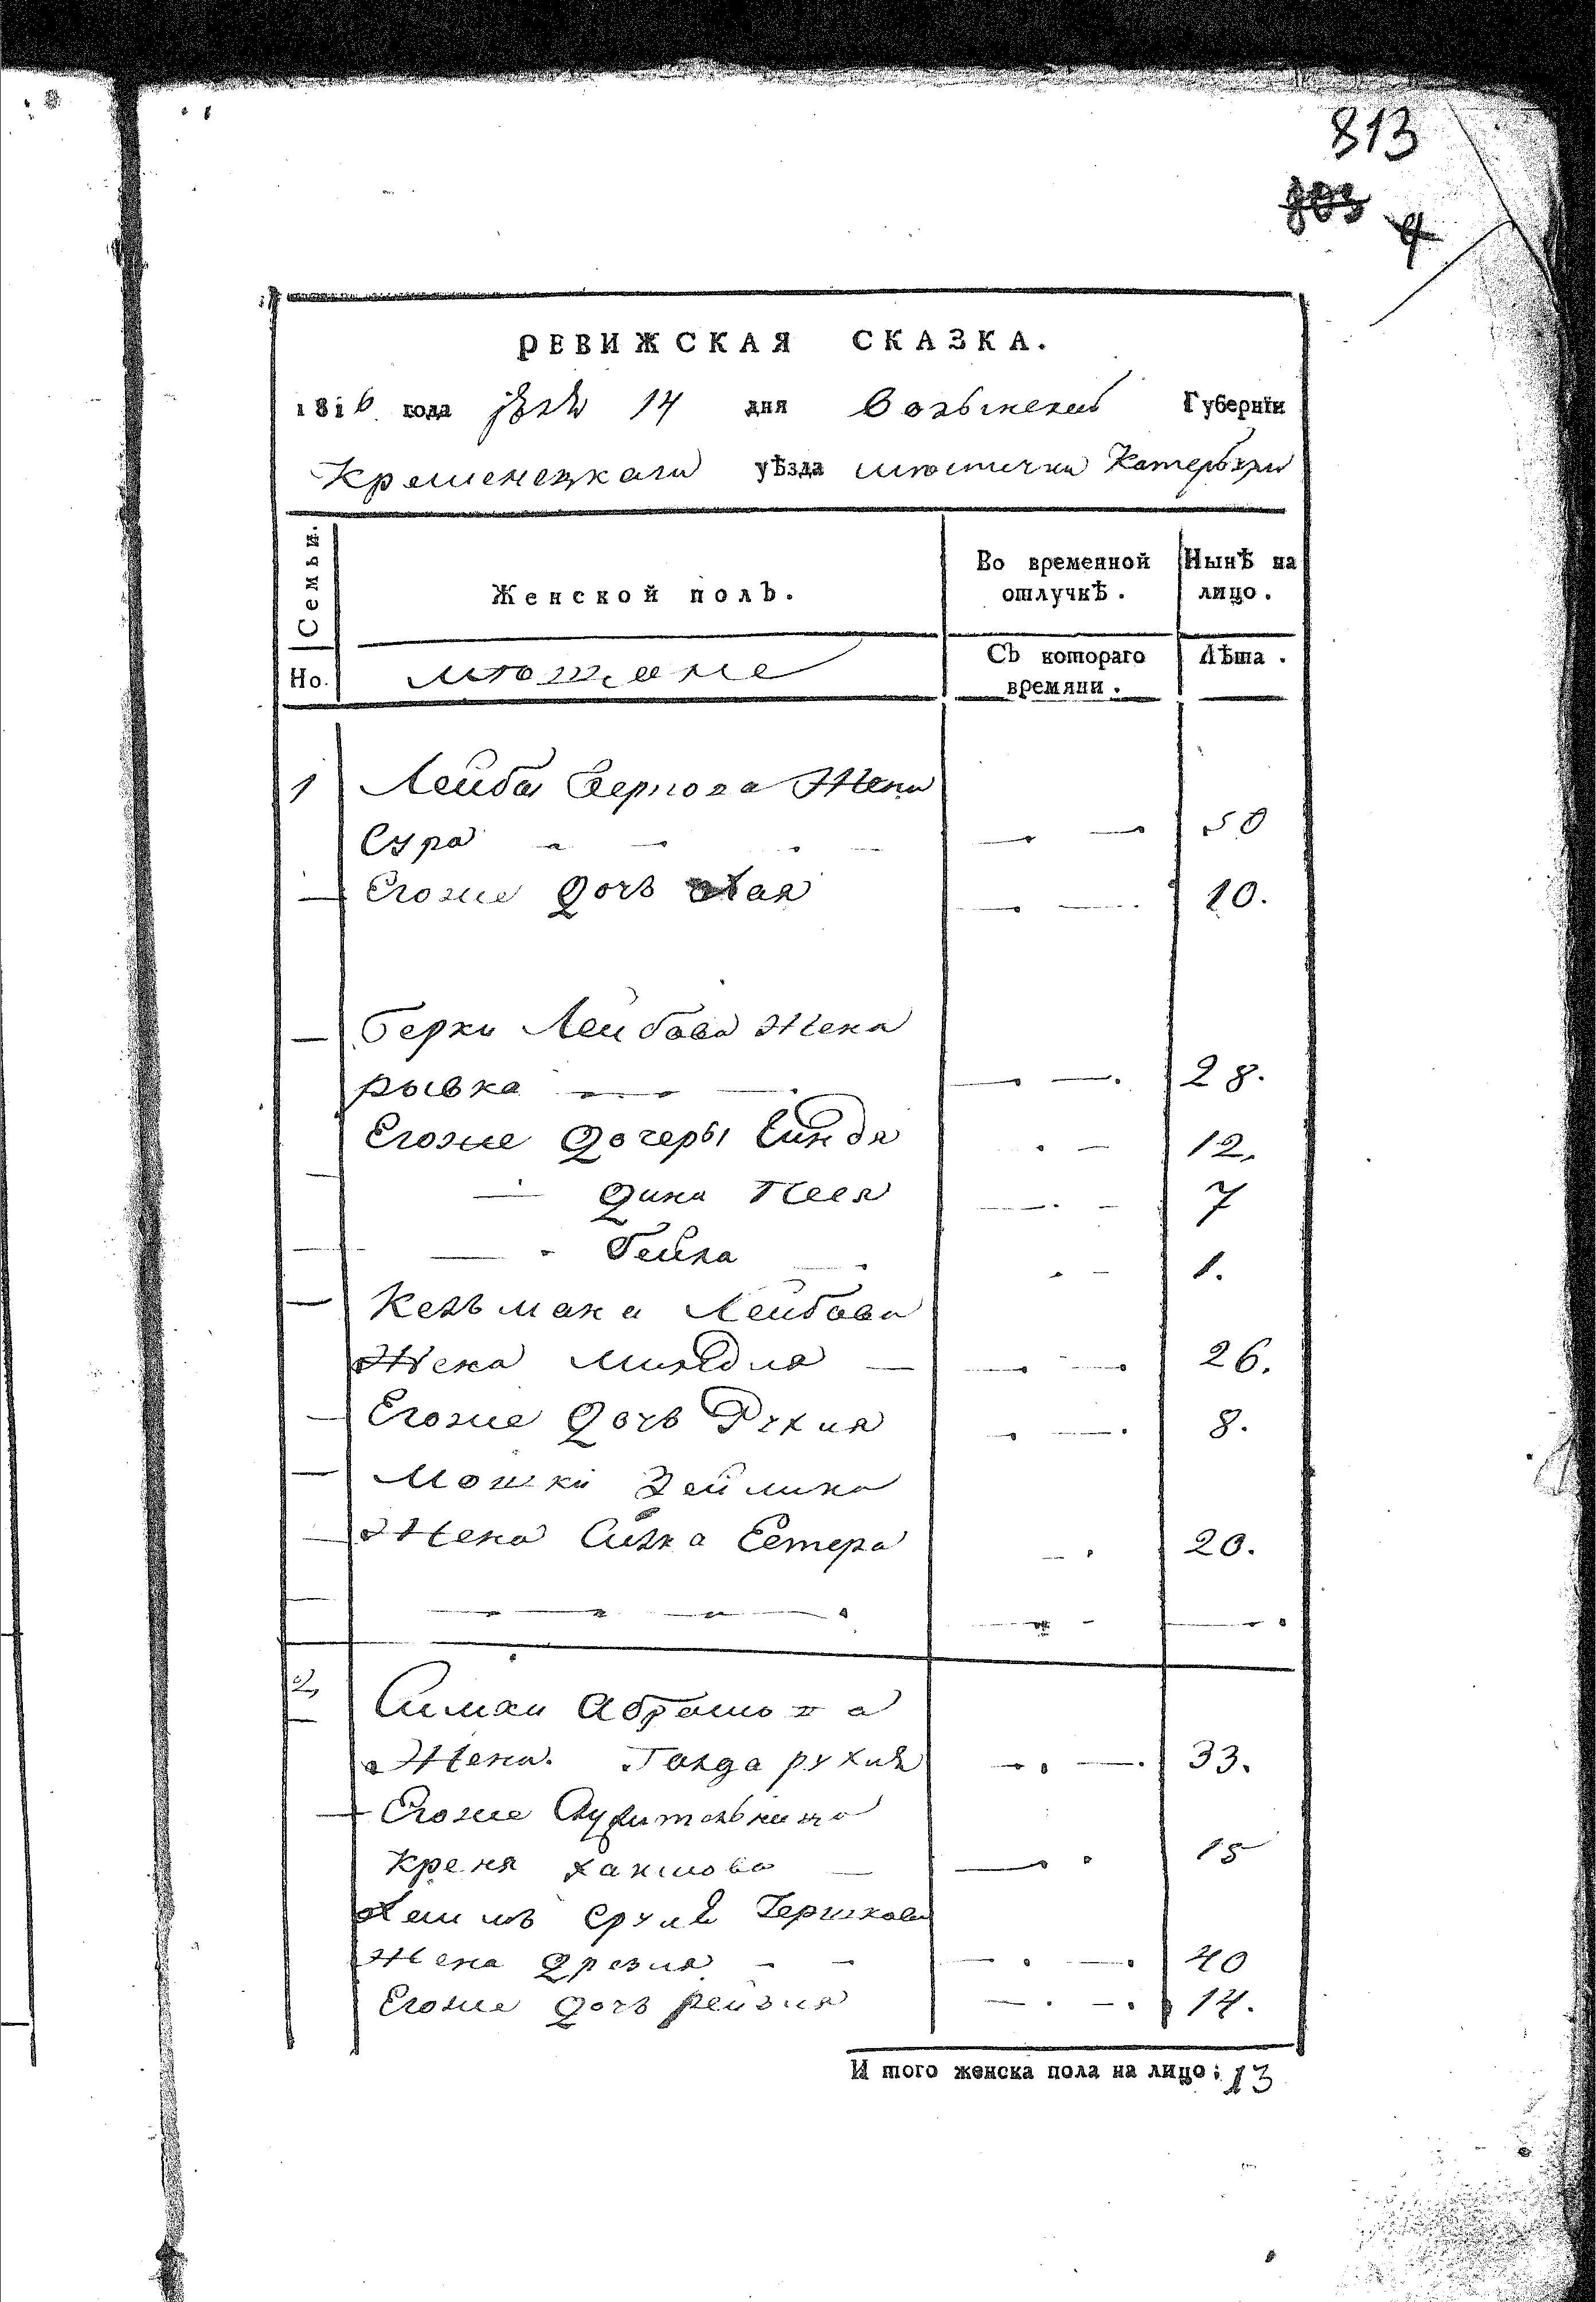 813
803
4
РЕВИЖСКАЯ СКАЗКА.
1816 года 14 дня Волынской Губернїи
Кременецкаго уѣзда местечка Катербурга
Семьи.
Женской полъ.
Во временной отлучкѣ.
Нынѣ на лицо.
Но.
Съ котораго времяни.
Лѣта.
1 Лейбы Жена
Сура 50
Егоже дочь Хая 10.
Берки Лейбова Жена
рывка 28.
Егоже дочеры Гиндя 12.
дина Песя 7
Бейла 1.
Кельмана Лейбова
Жена Миндля 26.
Егоже дочь Рухля 8.
Мошки Зейлика
Жена Естера 20.
2, Симхи Абрамова
Жена. Голда рухля 33.
Егоже
Креня 15
Сруля Гершкова
Жена дрезля 40
Егоже дочь рейзля 14.
И того женска пола на лицо: 13